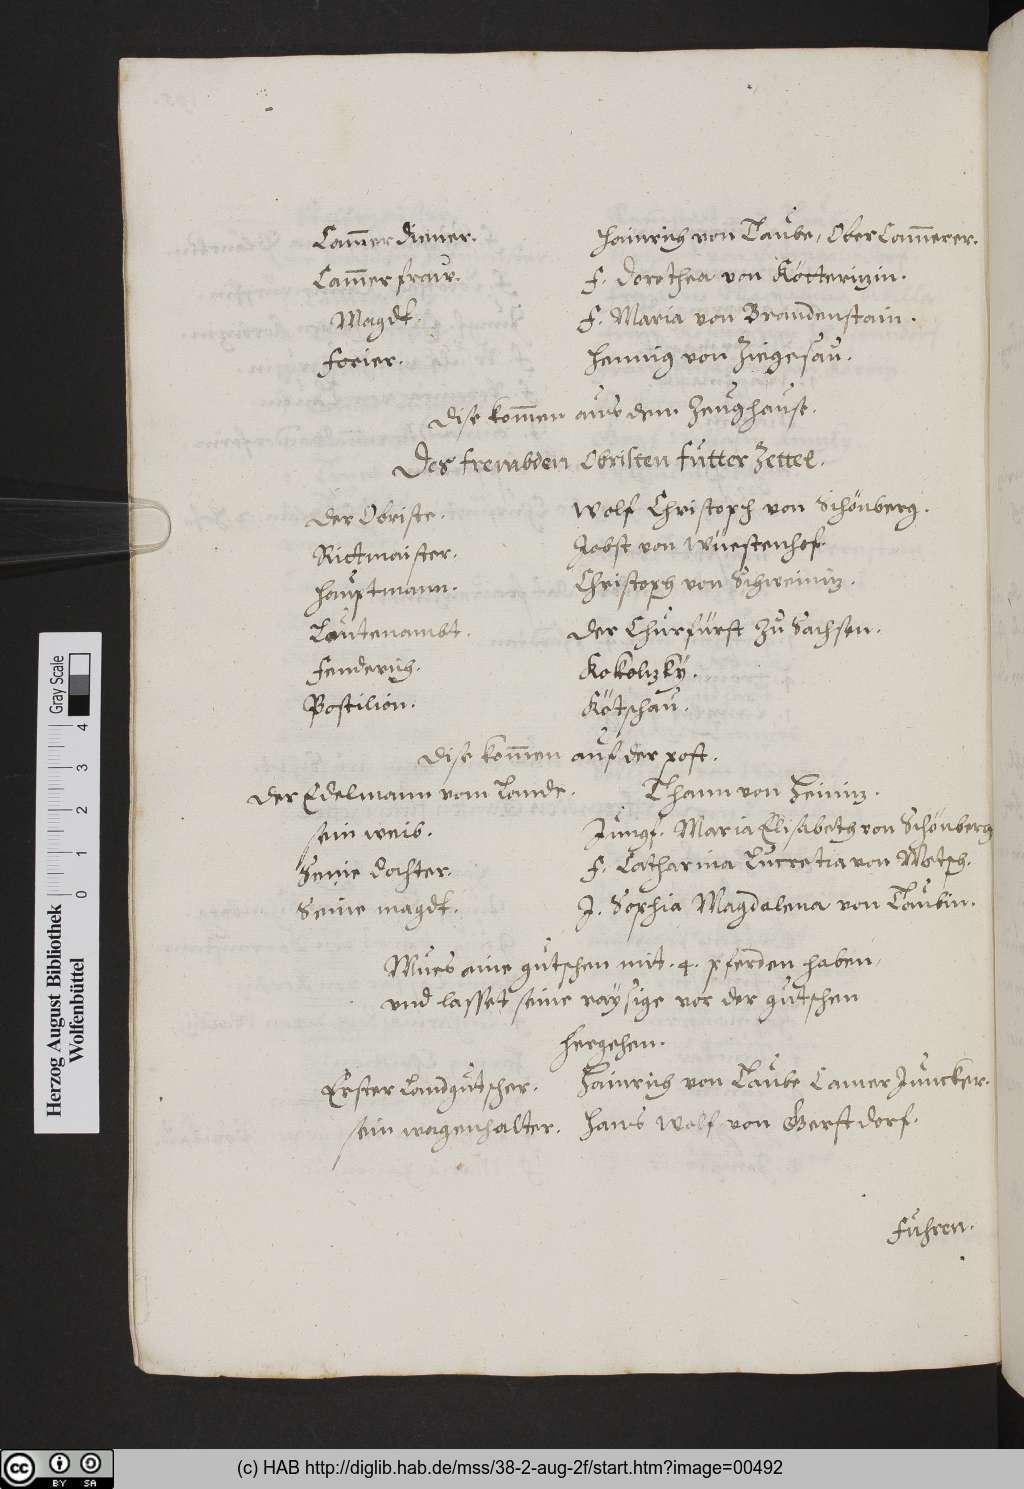 Cam̄er diener. Hainrich von Taube, Ober Cam̄erer.
Cam̄erfraw. F. Dorothea von Kötteritzin.
Magdt. F. Maria von Brandenstain.
Forier. Hennig von Ziegesau.
Dise kom̄en aus dem Zeughause.
Des frembden Obristen Futter Zettel.
Der Obriste. Wolf Christoph von Schönberg.
Ritmaister. Jobst von Wuestenhof.
Hauptmann. Christoph von Schweinitz.
Leutenambt. Der Churfürst Zu Sachsen.
Fenderich. Kokolizky.
Postilion. Kötschau.
Dise kom̄en auf der post.
Der Edelmann vom Lande. Thann von
sein weib. Jungf. Maria Elisabeth von Schönberg
Seine dochter. F. Catharina Lucretia von
Seine magdt. J. Sophia Magdalena von Taubin.
Mues eine gutschen mit .4. pferden haben,
und lasset seine raysige vor der gutschen
hergehen.
Erster Landgutscher. Hainrich von Taube Camer Juncker.
sein wagenhalter. Hans Wolf von Gerstdorf.
Fuhren.
Herzog August Bibliothek
Wolfenbüttel
Gray Scale
0 1 2 3 4
cc BY SA
(c) HAB http://diglib.hab.de/mss/38-2-aug-2f/start.htm?image=00492